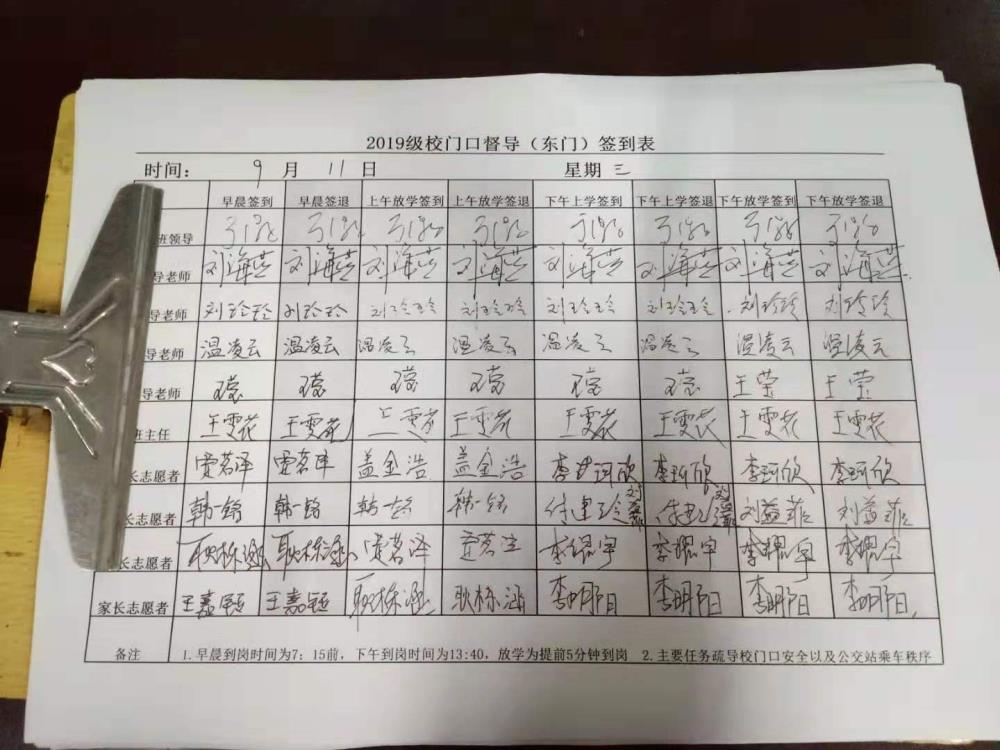 2019级校门口督导（东门）签到表
时间： 9 月 11 日 星期 三
早晨签到 早晨签退 上午放学签到 上午放学签退 下午上学签到 下午上学签退 下午放学签到 下午放学签退
班领导
导老师 刘海燕 刘海燕 刘海燕 刘海燕 刘海燕 刘海燕 刘海燕 刘海燕
导老师 刘玲玲 刘玲玲 刘玲玲 刘玲玲 刘玲玲 刘玲玲 刘玲玲 刘玲玲
导老师 温凌云 温凌云 温凌云 温凌云 温凌云 温凌云 温凌云 温凌云
导老师 王莹 王莹
班主任 王雯花 王雯花 王雯花 王雯花 王雯花 王雯花 王雯花 王雯花
长志愿者 贾茗泽 贾茗泽 盖金浩 盖金浩 李珂欣 李珂欣 李珂欣 李珂欣
长志愿者 韩一铭 韩一铭 韩一铭 韩一铭 刘益菲 刘益菲
长志愿者 耿栋涵 耿栋涵 贾茗泽 贾茗泽 李耀宇 李耀宇 李耀宇 李耀宇
家长志愿者 王嘉钰 王嘉钰 耿栋涵 耿栋涵 李明阳 李明阳 李明阳 李明阳
备注 1.早晨到岗时间为7：15前，下午到岗时间为13:40，放学为提前5分钟到岗 2.主要任务疏导校门口安全以及公交站乘车秩序